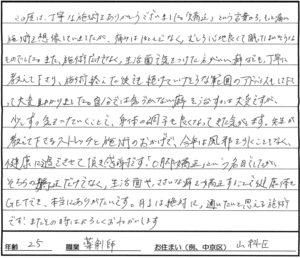 この度は、丁寧な施術をありがとうございました。「矯正」という言葉から、もっと痛い
施術を想像していましたが、痛みはほとんどなく、むしろ心地良くて眠くなりそうな
ものでした。また、施術だけでなく、生活面で気をつけた方がいい癖なども、丁寧に
教えて下さり、施術を終えた後は続けていけそうな範囲のアドバイスをして下さ
って大変助かりました。自分では気づかない癖を治すのは大変ですが、
少しずつ気をつけていくことで、身体の調子も良くなってきた気がします。先生が
教えて下さるストレッチと施術のおかげで、今年は風邪をひくことなく、
健康に過ごさせて頂き感謝です!「
そちらの矯正だけでなく、生活面や、ささいな癖まで矯正することで健康体を
GETでき、本当にありがたいです。月1は絶対に、通いたいと思える施術
です!またその時はよろしくおねがいします
年齢 25 職業 薬剤師 お住まい(例、中京区) 山科区